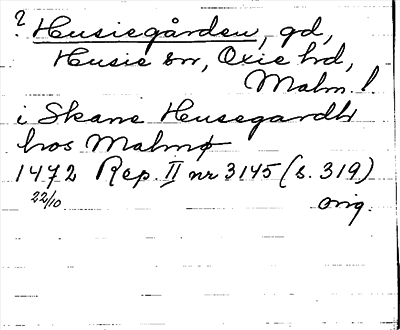 ? Husiegården, gd,
Husie sn, Oxie hd,
Malm. l.
i Skane Husegardh
hos Malmø
1472 Rep. II nr 3145 (s. 319)
22/10 orig.